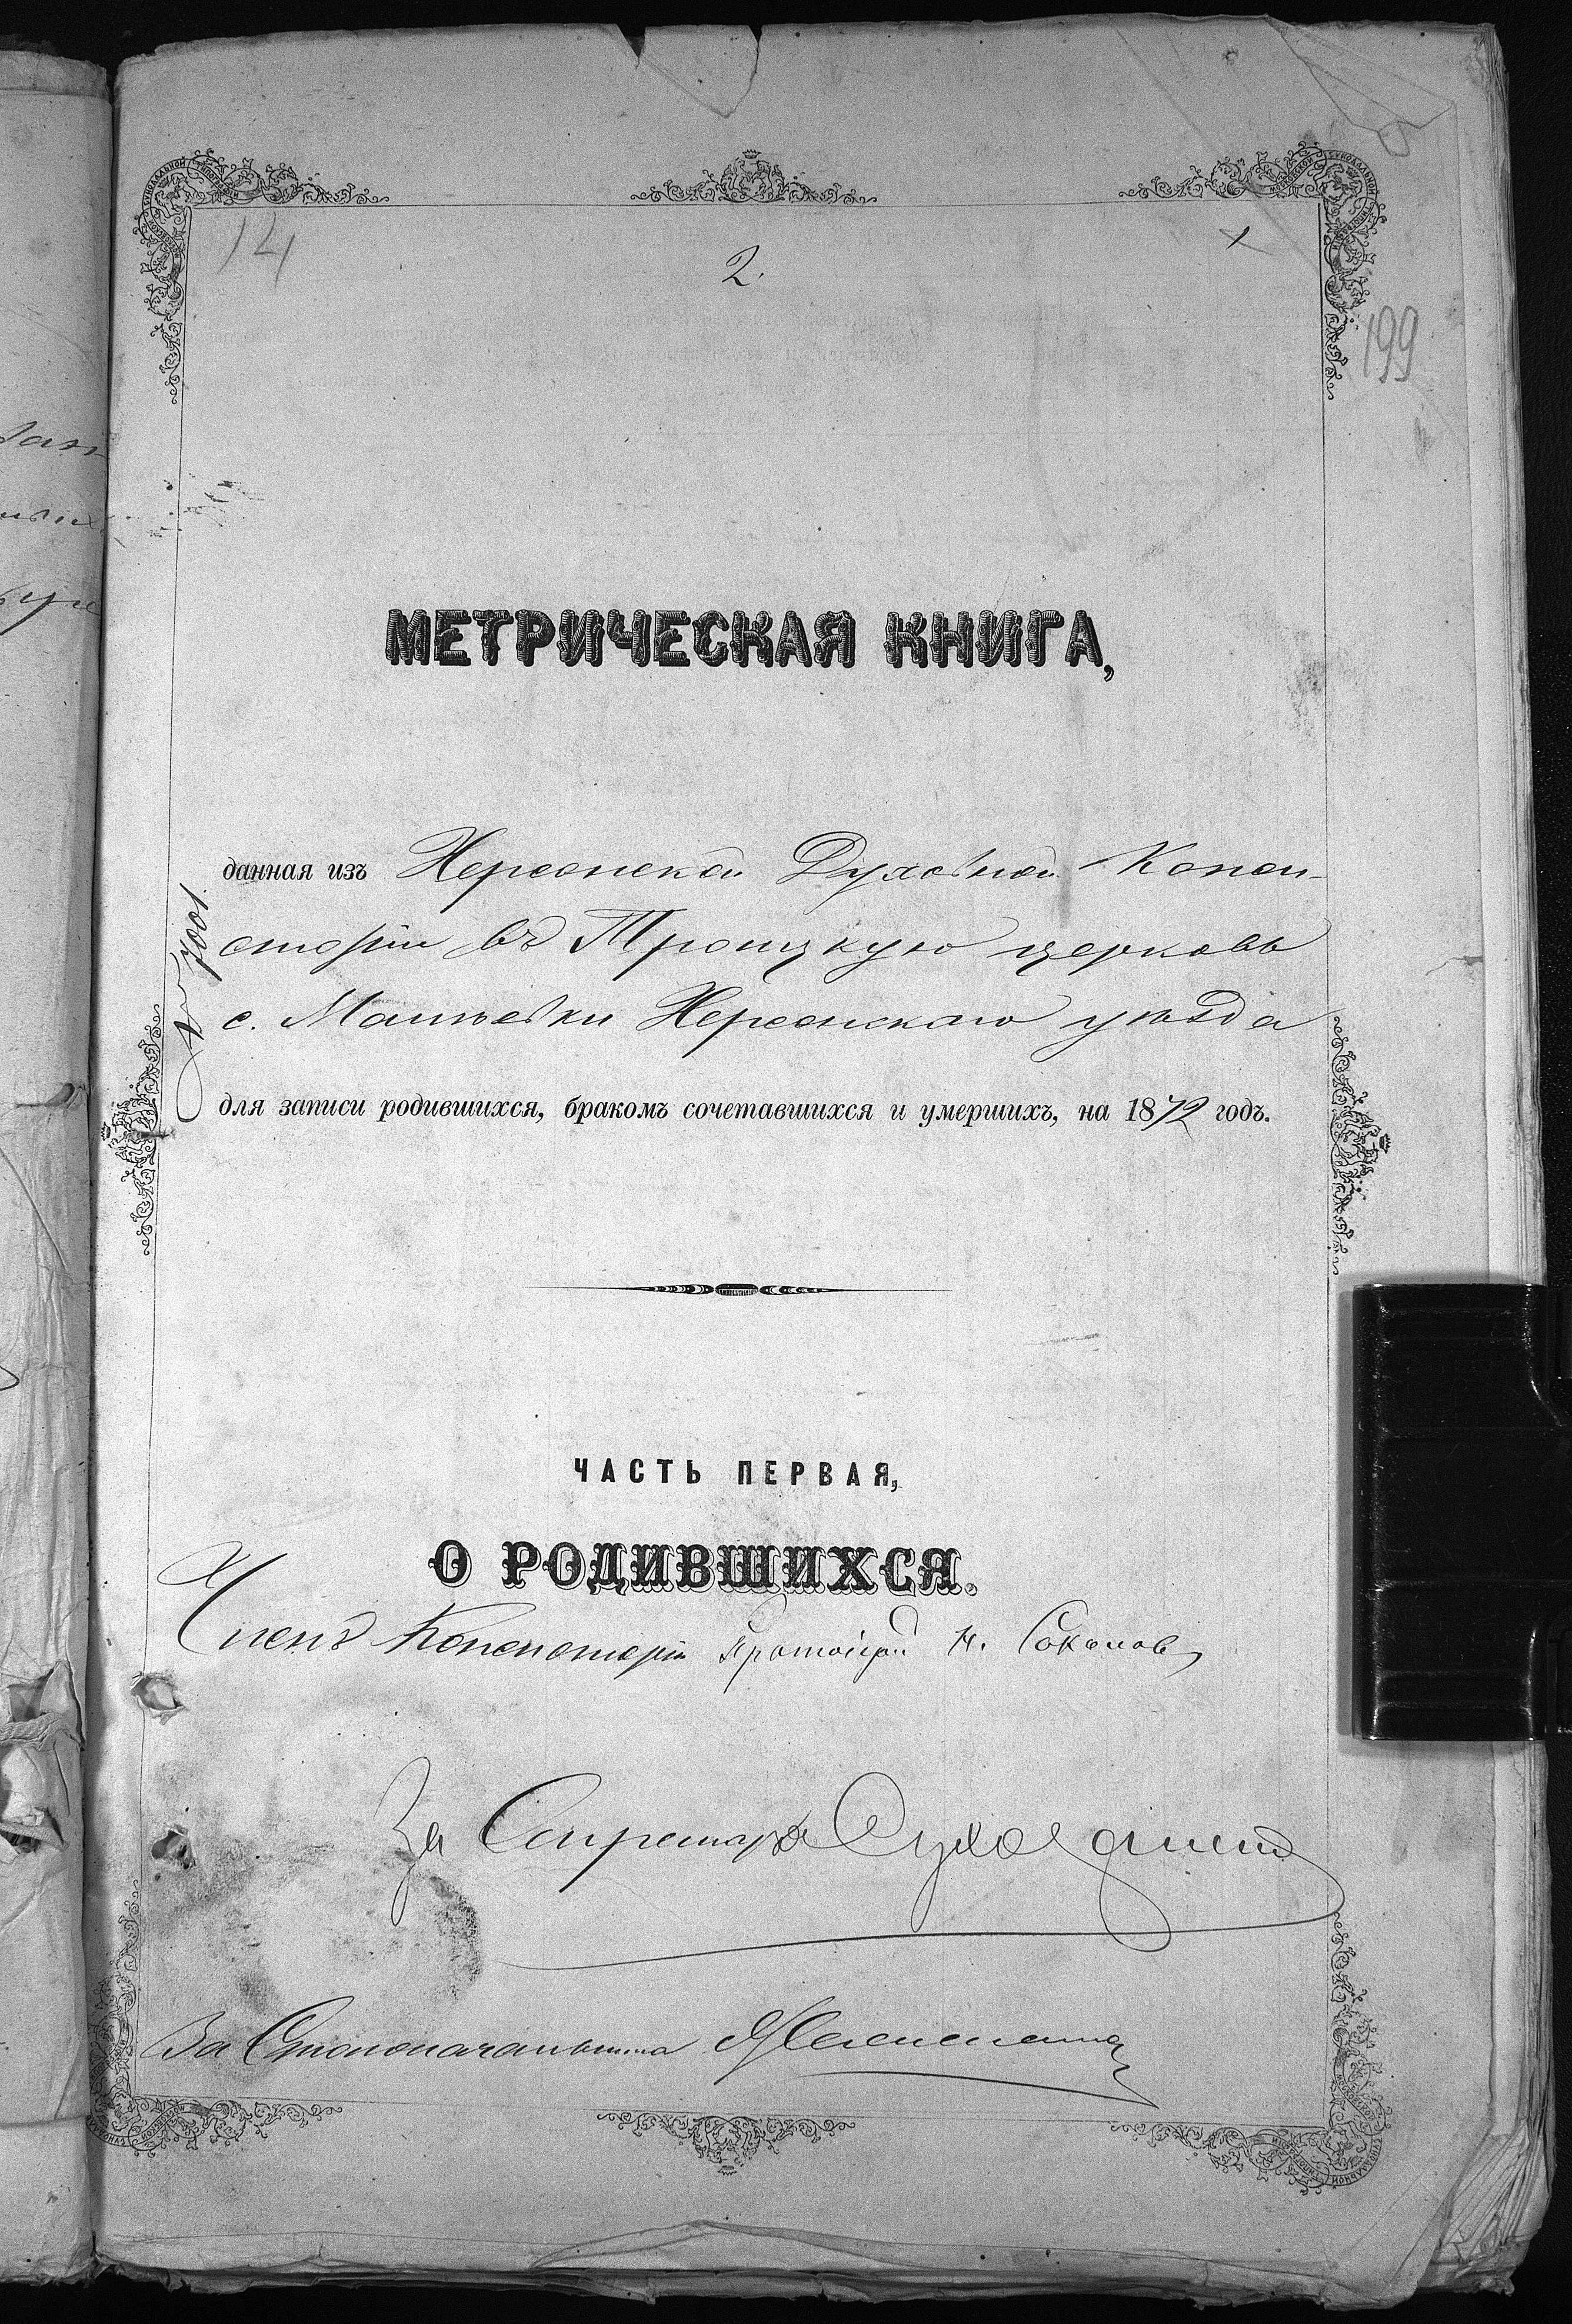 14
2.
199
МЕТРИЧЕСКАЯ КНИГА,
данная изъ Херсонской Духовной Конси-
сторіи въ Троицкую церковь
с. Маліевки Херсонскаго уѣзда
№ 7001.
для записи родившихся, бракомъ сочетавшихся и умершихъ, на 1872 годъ.
ЧАСТЬ ПЕРВАЯ,
О РОДИВШИХСЯ.
Членъ Консисторіи Протоіерей Н. Соколовъ
За Секретаря
За Столоначальника